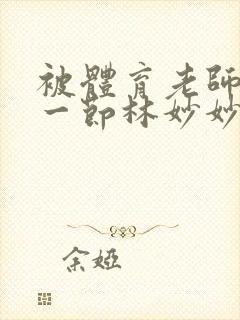 被體育老師
一節林妙妙
余婭